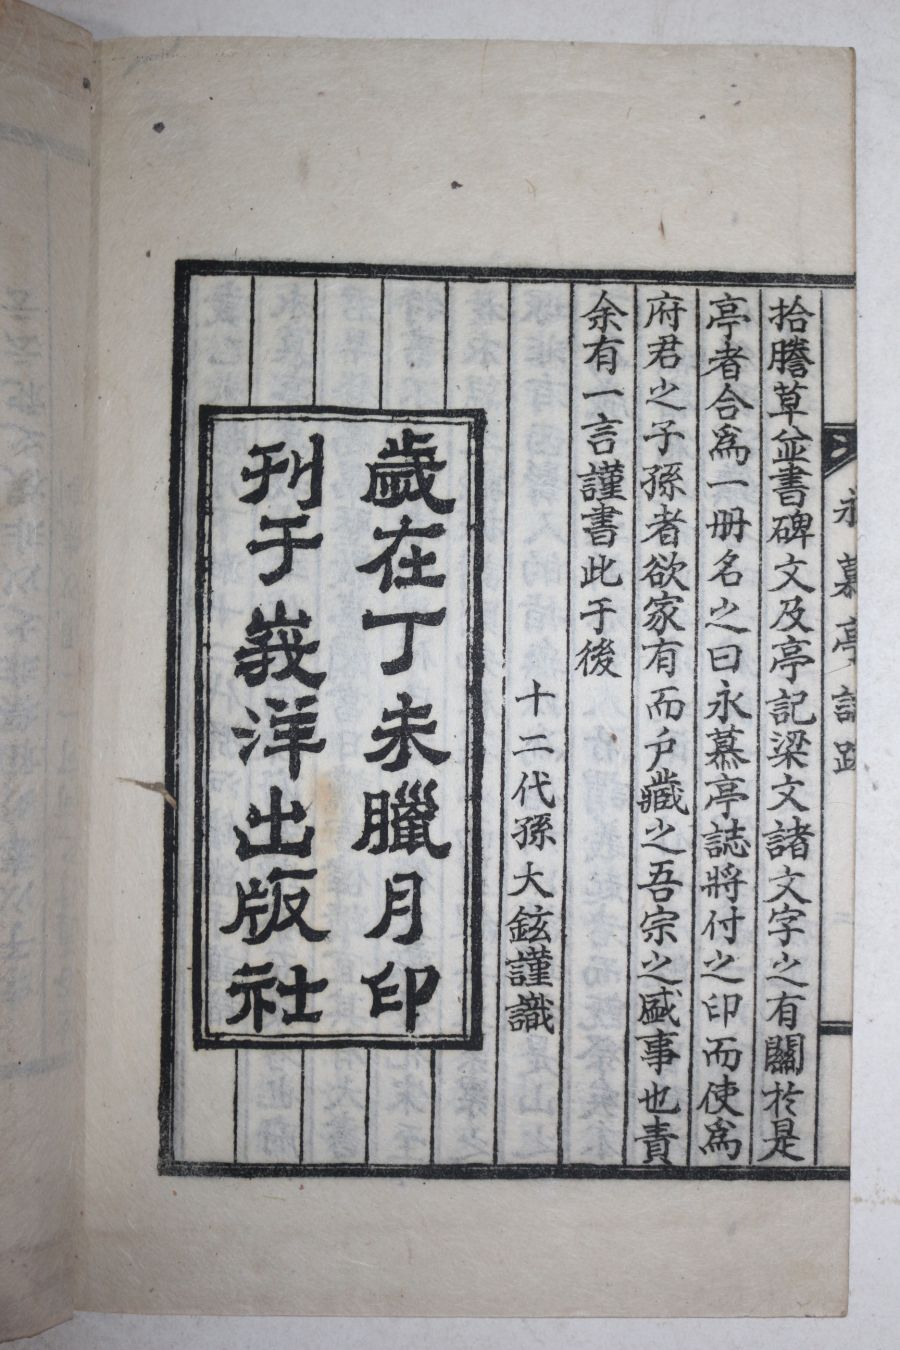 永慕亭誌跋
拾謄草並書碑文及亭記梁文諸文字之有關於是
亭者合爲一册名之曰永慕亭誌將付之印而使爲
府君之子孫者欲家有而戶藏之吾宗之盛事也責
余有一言謹書此于後
十二代孫大鉉謹識
歲在丁未臘月印
刊于峩洋出版社